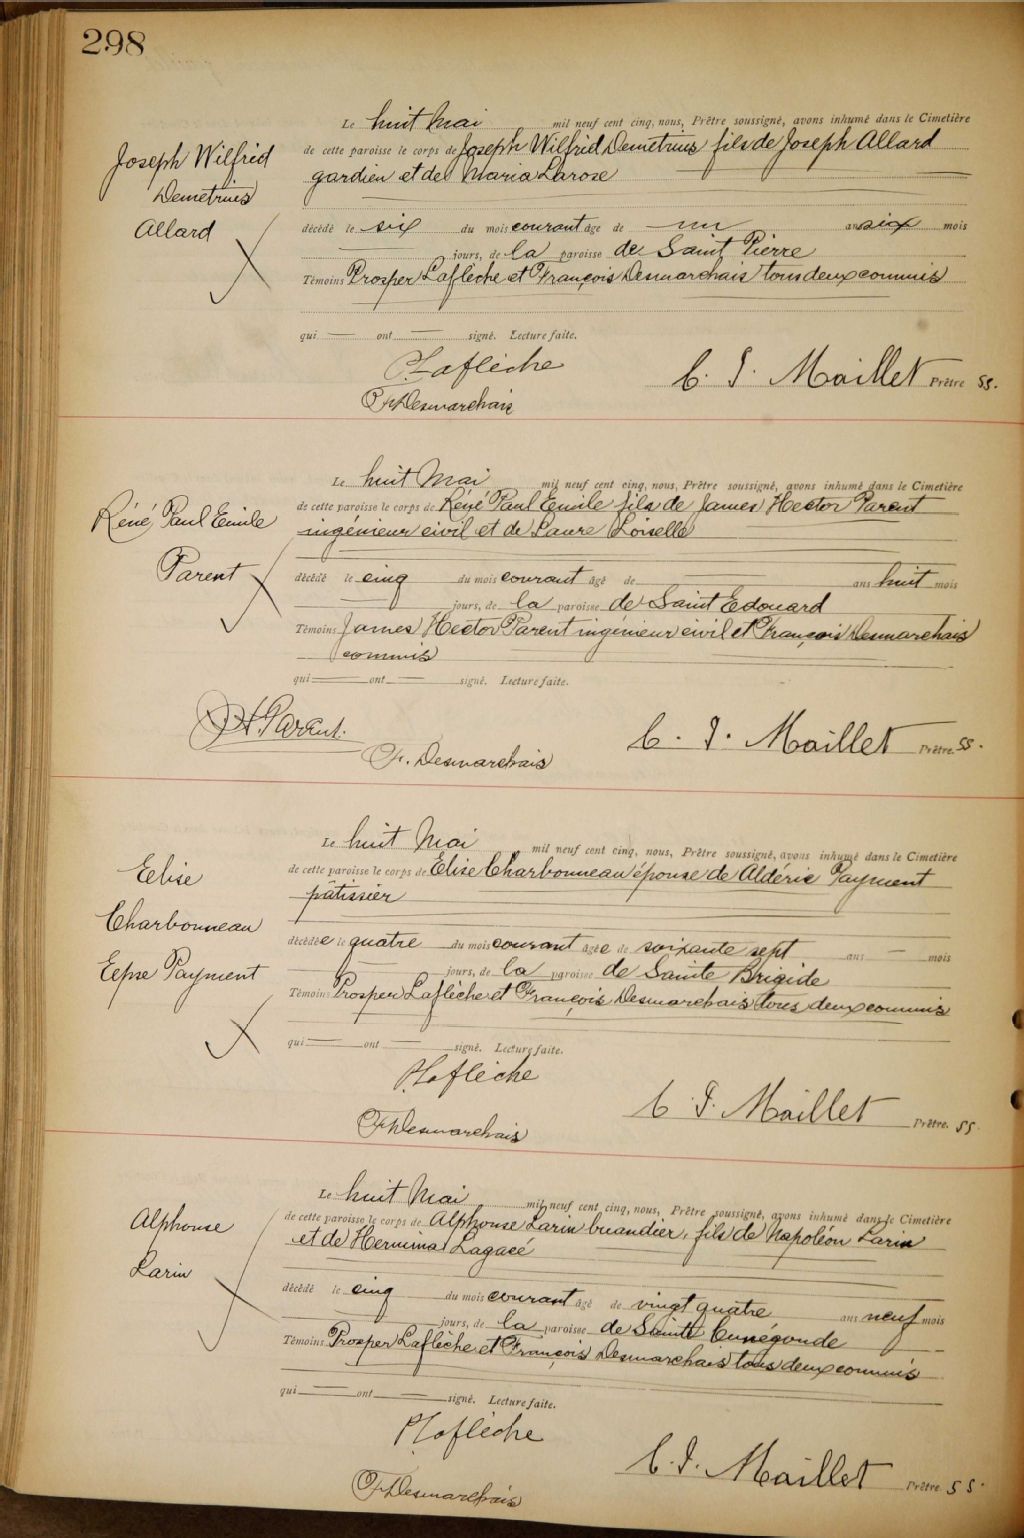 298
Le huit Mai mil neuf cent cinq, nous, Prêtre soussigné, avons inhumé dans le Cimetière
de cette paroisse le corps de Joseph Wilfrid Demetrius fils de Joseph Allard
gardien et de Maria Larose
Joseph Wilfrid
Demetrius
Allard
décédé le six du mois courant âgé de un ans six mois
jours, de la paroisse de Saint Pierre
Témoins Prosper Laflèche et François Desmarchais tous deux commis
qui — ont — signé. Lecture faite.
P. Laflèche
C. J. Maillet Prêtre SS.
Fr Desmarchais
Le huit Mai mil neuf cent cinq, nous, Prêtre soussigné, avons inhumé dans le Cimetière
de cette paroisse le corps de Réné Paul Emile fils de James Hector Parent
ingénieur civil et de Laure Loiselle
Réné Paul Emile
Parent
décédé le cinq du mois courant âgé de — ans huit mois
jours, de la paroisse de Saint Edouard
Témoins James Hector Parent ingénieur civil et François Desmarchais
commis
qui — ont — signé. Lecture faite.
H. Parent.
C. J. Maillet Prêtre SS.
Fr. Desmarchais
Le huit Mai mil neuf cent cinq, nous, Prêtre soussigné, avons inhumé dans le Cimetière
de cette paroisse le corps de Elise Charbonneau épouse de Aldéric Payment
pâtissier
Elise
Charbonneau
Epse Payment
décédée le quatre du mois courant âgée de soixante sept ans — mois
jours, de la paroisse de Sainte Brigide
Témoins Prosper Laflèche et François Desmarchais tous deux commis
qui — ont — signé. Lecture faite.
P Laflèche
C. J. Maillet Prêtre. SS.
Fr Desmarchais
Le huit Mai mil neuf cent cinq, nous, Prêtre soussigné, avons inhumé dans le Cimetière
de cette paroisse le corps de Alphonse Larin buandier, fils de Napoléon Larin
et de Hermina Lagacé
Alphonse
Larin
décédé le cinq du mois courant âgé de vingt quatre ans neuf mois
jours, de la paroisse de Sainte Cunégonde
Témoins Prosper Laflèche et François Desmarchais tous deux commis
qui — ont — signé. Lecture faite.
P Laflèche
C. J. Maillet Prêtre SS.
Fr Desmarchais